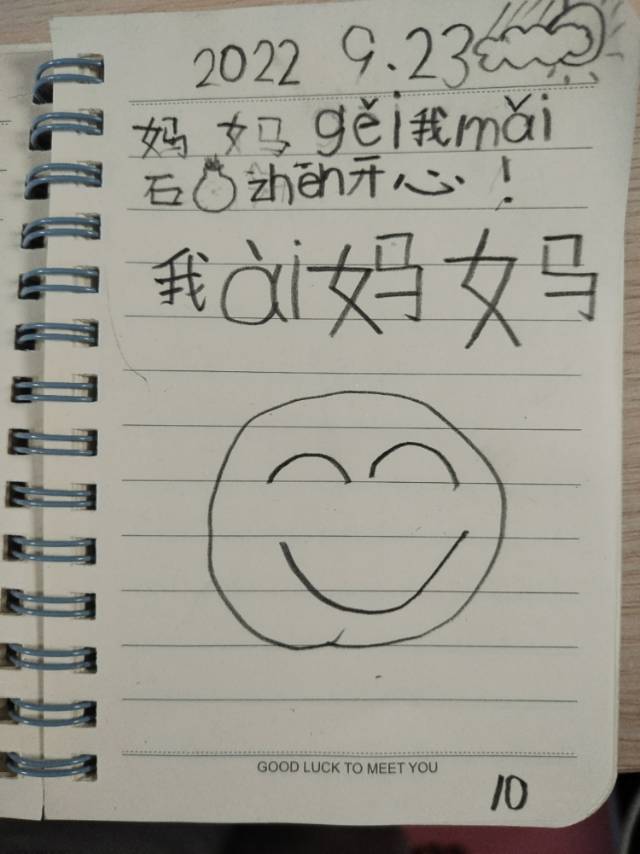 2022 9.23
妈 妈 gěi我mǎi
石 zhēn开心!
我ài妈 妈
GOOD LUCK TO MEET YOU
10